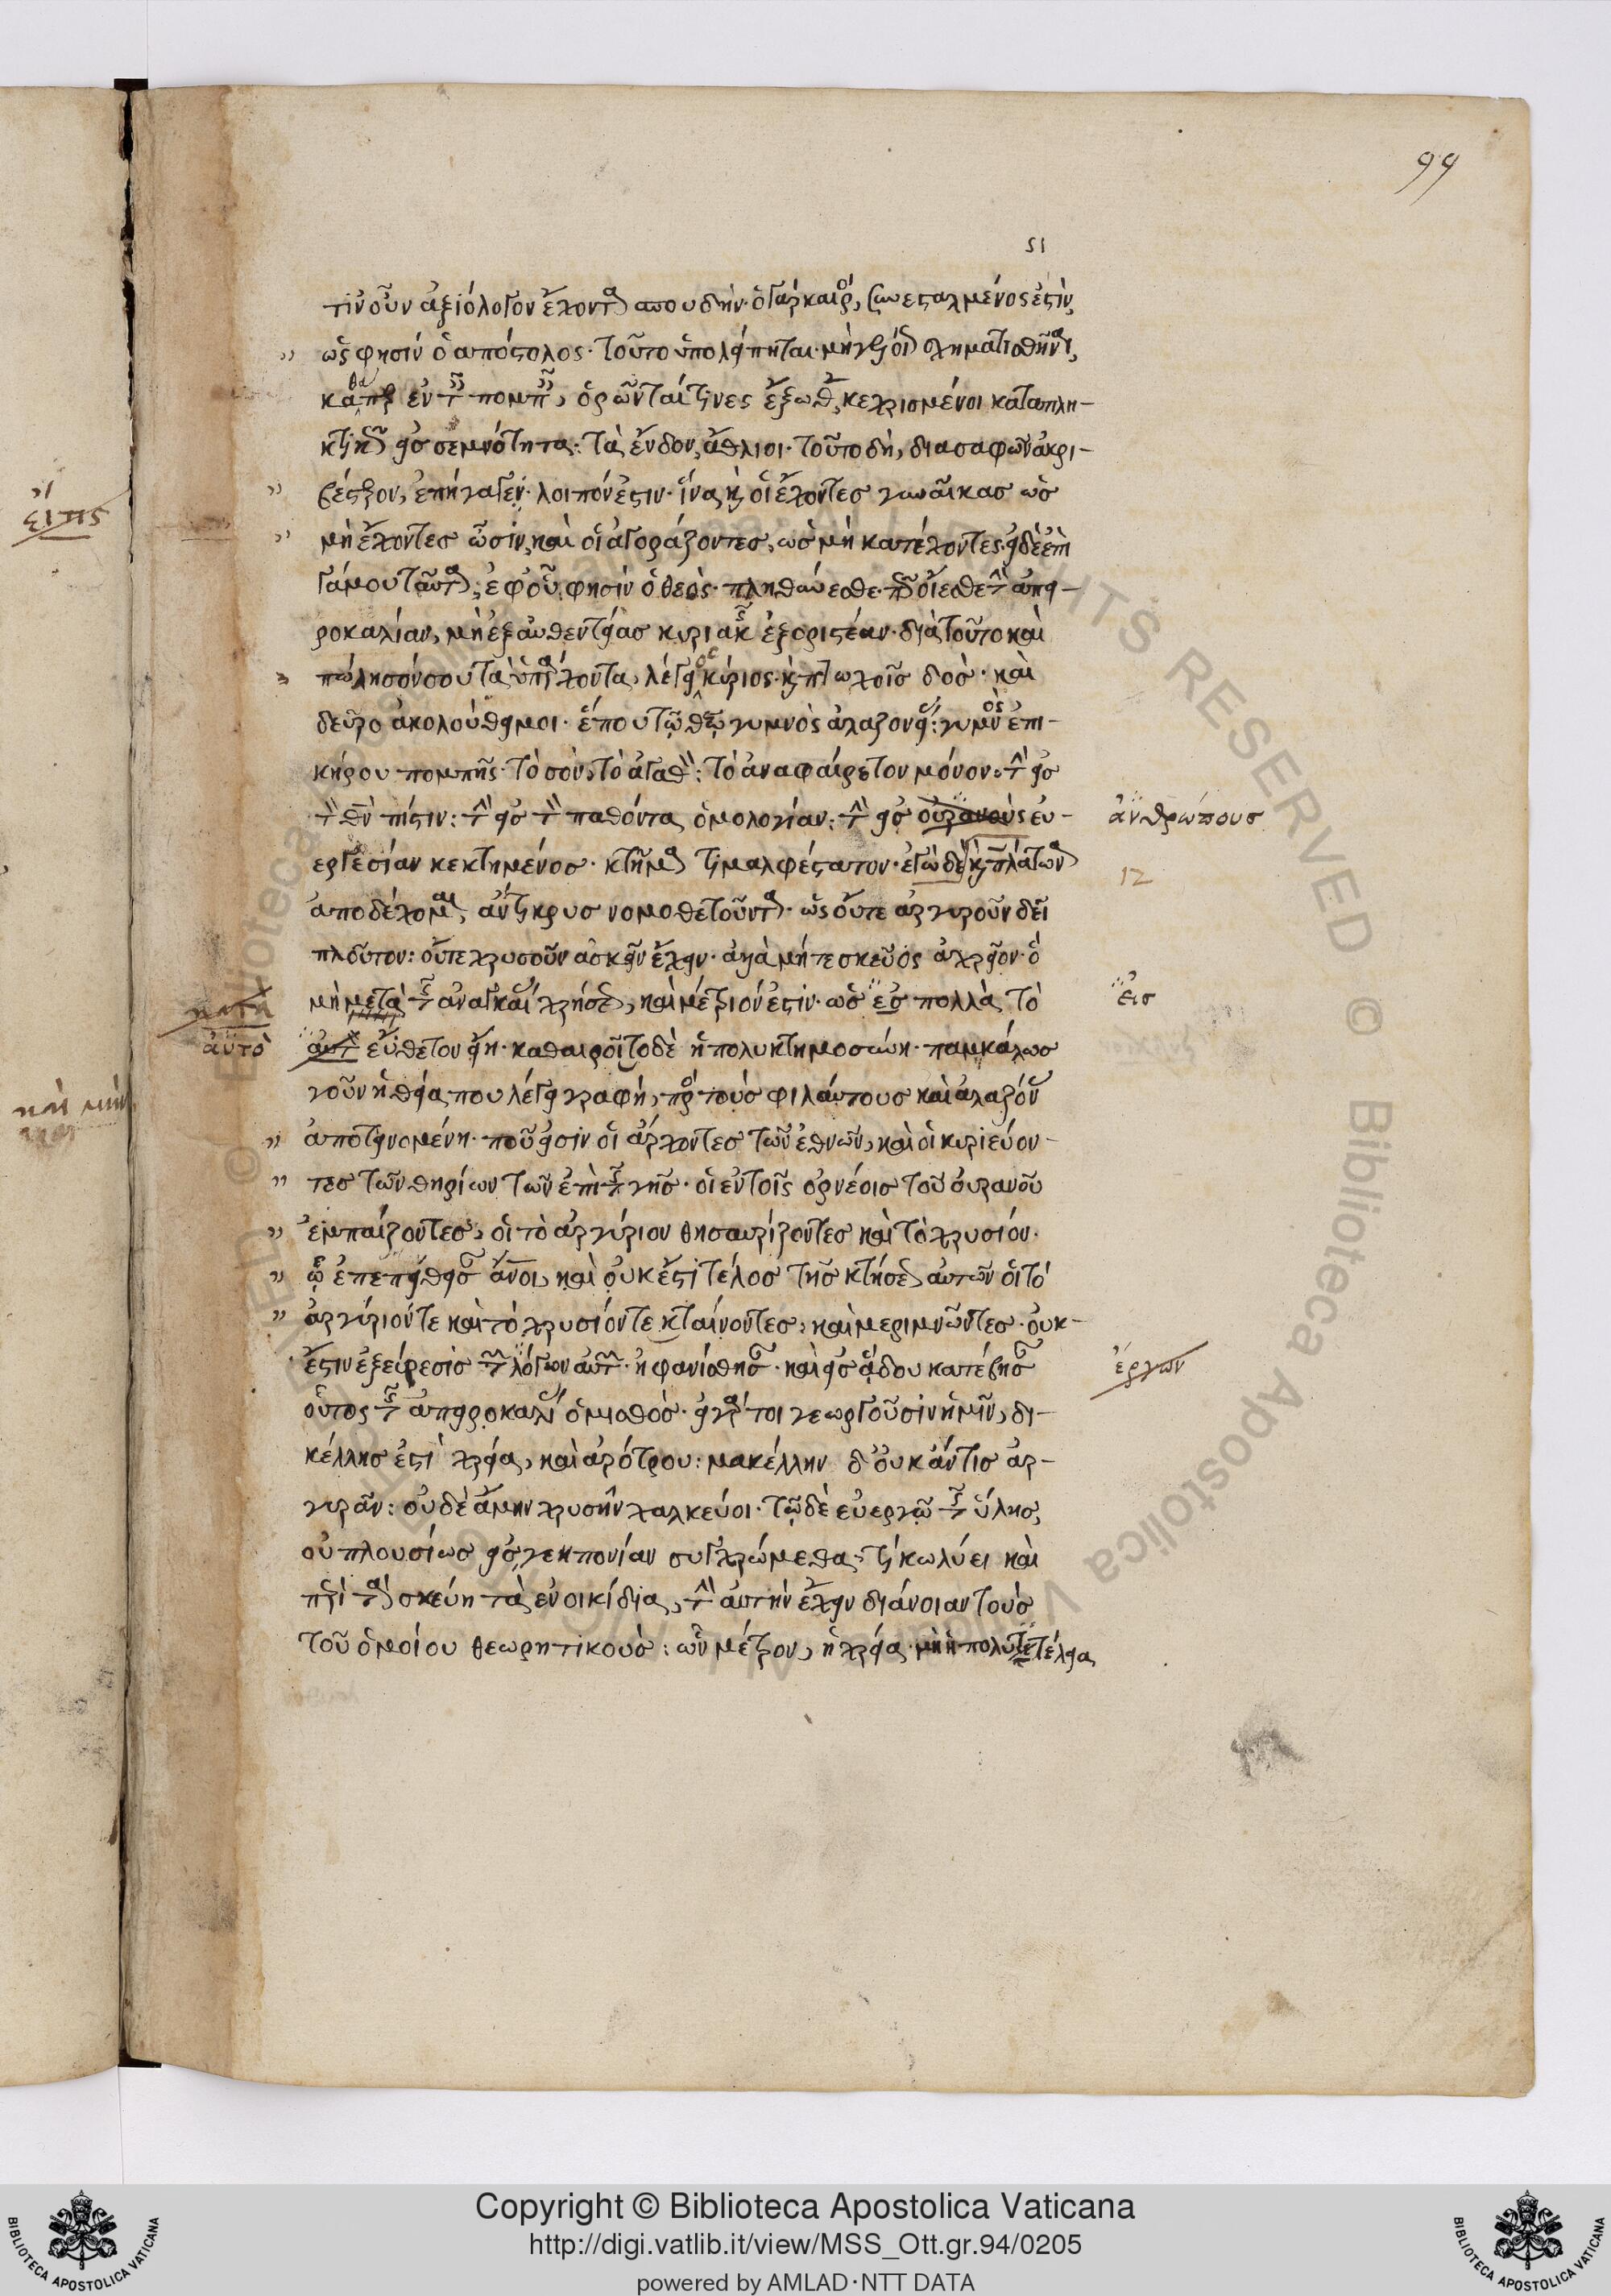 99
SI
τιν οὖν ἀξιόλογον ἔχοντα σπουδήν· ὁ γὰρ καιρὸς, συνεσταλμένος ἐστὶν,
ὥς φησίν ὁ ἀπόστολος· τοῦτο ὑπολείπηται· μὴ γελοίως σχηματισθῆναι,
καθάπερ ἐν ταῖς πομπαῖς, ὁρῶνταί τινες ἔξωθεν κεχρισμένοι καταπλη-
κτικῶς εἰς σεμνότητα: τὰ ἔνδον, ἄθλιοι· τοῦτο δὴ, διασαφῶν ἀκρι-
βέστερον, ἐπήγαγεν· λοιπόν ἐστιν· ἵνα καὶ οἱ ἔχοντες γυναῖκας ὡς
μὴ ἔχοντες ὦσιν, καὶ οἱ ἀγοράζοντες, ὡς μὴ κατέχοντες· εἰ δὲ ἐπὶ
γάμου ταῦτα; ἐφ' οὗ φησὶν ὁ θεὸς· πληθύνεσθε· πῶς οἴεσθε τὴν ἀπει-
ροκαλίαν, μὴ ἐξ αὐθεντείας κυριακῆς ἐξοριστέαν· διὰ τοῦτο καὶ
πώλησόν σου τὰ ὑπάρχοντα, λέγει ὁ κύριος· καὶ πτωχοῖς δὸς· καὶ
δεῦρο ἀκολούθει μοι· ἕπου τῷ θεῷ γυμνὸς ἀλαζονείας: γυμνὸς ἐπι-
κήρου πομπῆς· τὸ σὸν, τὸ ἀγαθὸν: τὸ ἀναφαίρετον μόνον· τὴν εἰς
τὸν θν πίστιν: τὴν εἰς τὸν παθόντα ὁμολογίαν: τὴν εἰς οὐρανοὺς εὐ-
ἀνθρώπους
εργεσίαν κεκτημένος· κτῆμα τιμαλφέστατον· ἐγὼ δὲ καὶ πλάτωνα
12
ἀποδέχομαι, ἄντικρυς νομοθετοῦντα· ὡς οὔτε ἀργυροῦν δεῖ
πλοῦτον: οὔτε χρυσοῦν ἀσκεῖν ἔχειν· ἀλλὰ μήτε σκεῦος ἀχρεῖον· ὃ
μὴ μετὰ τῆς ἀναγκαίας χρήσεως, καὶ μέτριόν ἐστιν· ὡς ἐς πολλὰ, τὸ
εἰς
αὐτὸ
εὔθετον εἴη· καθαιροῖτο δὲ ἡ πολυκτημοσύνη· παγκάλως
γοῦν ἡ θεία που λέγει γραφή, πρὸς τοὺς φιλαύτους καὶ ἀλαζόνας
ἀποτεινομένη· ποῦ εἰσιν οἱ ἄρχοντες τῶν ἐθνῶν, καὶ οἱ κυριεύον-
τες τῶν θηρίων τῶν ἐπὶ τῆς γῆς· οἱ ἐν τοῖς ὀρνέοις τοῦ οὐρανοῦ
ἐμπαίζοντες, οἱ τὸ ἀργύριον θησαυρίζοντες καὶ τὸ χρυσίον·
ᾧ ἐπεποίθεισαν ἄνοι, καὶ οὐκ ἔστι τέλος τῆς κτήσεως αὐτῶν οἱ τὸ
ἀργύριόν τε καὶ τὸ χρυσίόν τε κταίνοντες, καὶ μεριμνῶντες· οὐκ
ἔστιν ἐξεύρεσις τῶν λόγων αὐτῶν· ἠφανίσθησαν· καὶ εἰς ᾅδου κατέβησαν
ἔργων
οὗτος τῆς ἀπειροκαλίας ὁ μισθὸς· εἰ γάρ τοι γεωργοῦσιν ἡμῖν, δι-
κέλλης ἐστὶ χρεία, καὶ ἀρότρου: μακέλλην δ' οὐκ ἄν τις ἀρ-
γυρᾶν: οὐδὲ ἄμην χρυσῆν χαλκεύοι· τῷ δὲ εὐεργῷ τῆς ὕλης,
οὐ πλουσίως εἰς γεηπονίαν συγχρώμεθα· τί κωλύει καὶ
περὶ τὰ σκεύη τὰ ἐνοικίδια, τὴν αὐτὴν ἔχειν διάνοιαν τοὺς
τοῦ ὁμοίου θεωρητικούς: ὧν μέτρον, ἡ χρεία· μὴ ἡ πολυτετέλεια
Copyright © Biblioteca Apostolica Vaticana
http://digi.vatlib.it/view/MSS_Ott.gr.94/0205
powered by AMLAD·NTT DATA
BIBLIOTECA APOSTOLICA VATICANA
BIBLIOTECA APOSTOLICA VATICANA